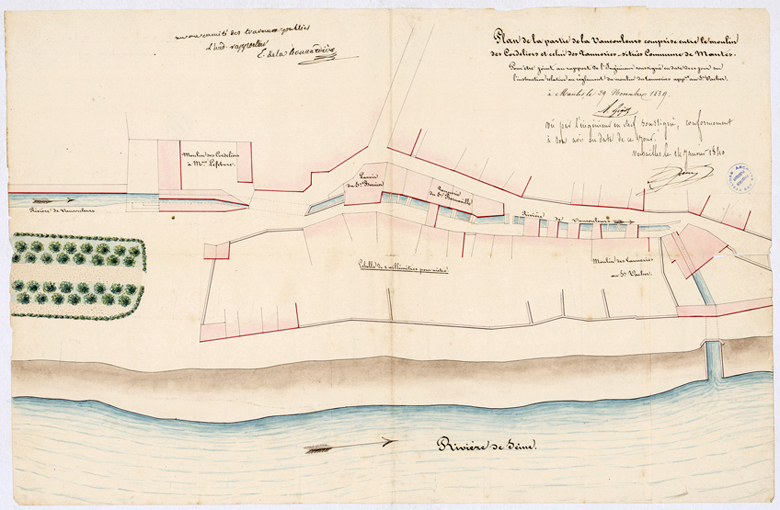 Vu au conseil des travaux publics
L'ind. rapporteur
Plan de la partie de la Vaucouleurs comprise entre le moulin
des Cordeliers et celui des Tanneries, situés Commune de Mantes.
Pour être joint au rapport de l'Ingénieur soussigné en date de ce jour sur
l'instruction relative au règlement du moulin des tanneries app.nt au Sr. Vachez.
à Mantes, le 29 Novembre 1839.
Vu par l'ingénieur en chef soussigné, conformement
à son avis en date de ce jour.
Versailles le 14 Janvier 1840
Moulin des Cordeliers
à Mme Lefebvre.
Lavoir
du Sr.
du Sr.
Rivière de Vaucouleurs
Rivière de Vaucouleurs
Echelle de 2 millimètres pour mètre
Moulin des Tanneries
au Sr. Vachez.
Rivière de Seine.